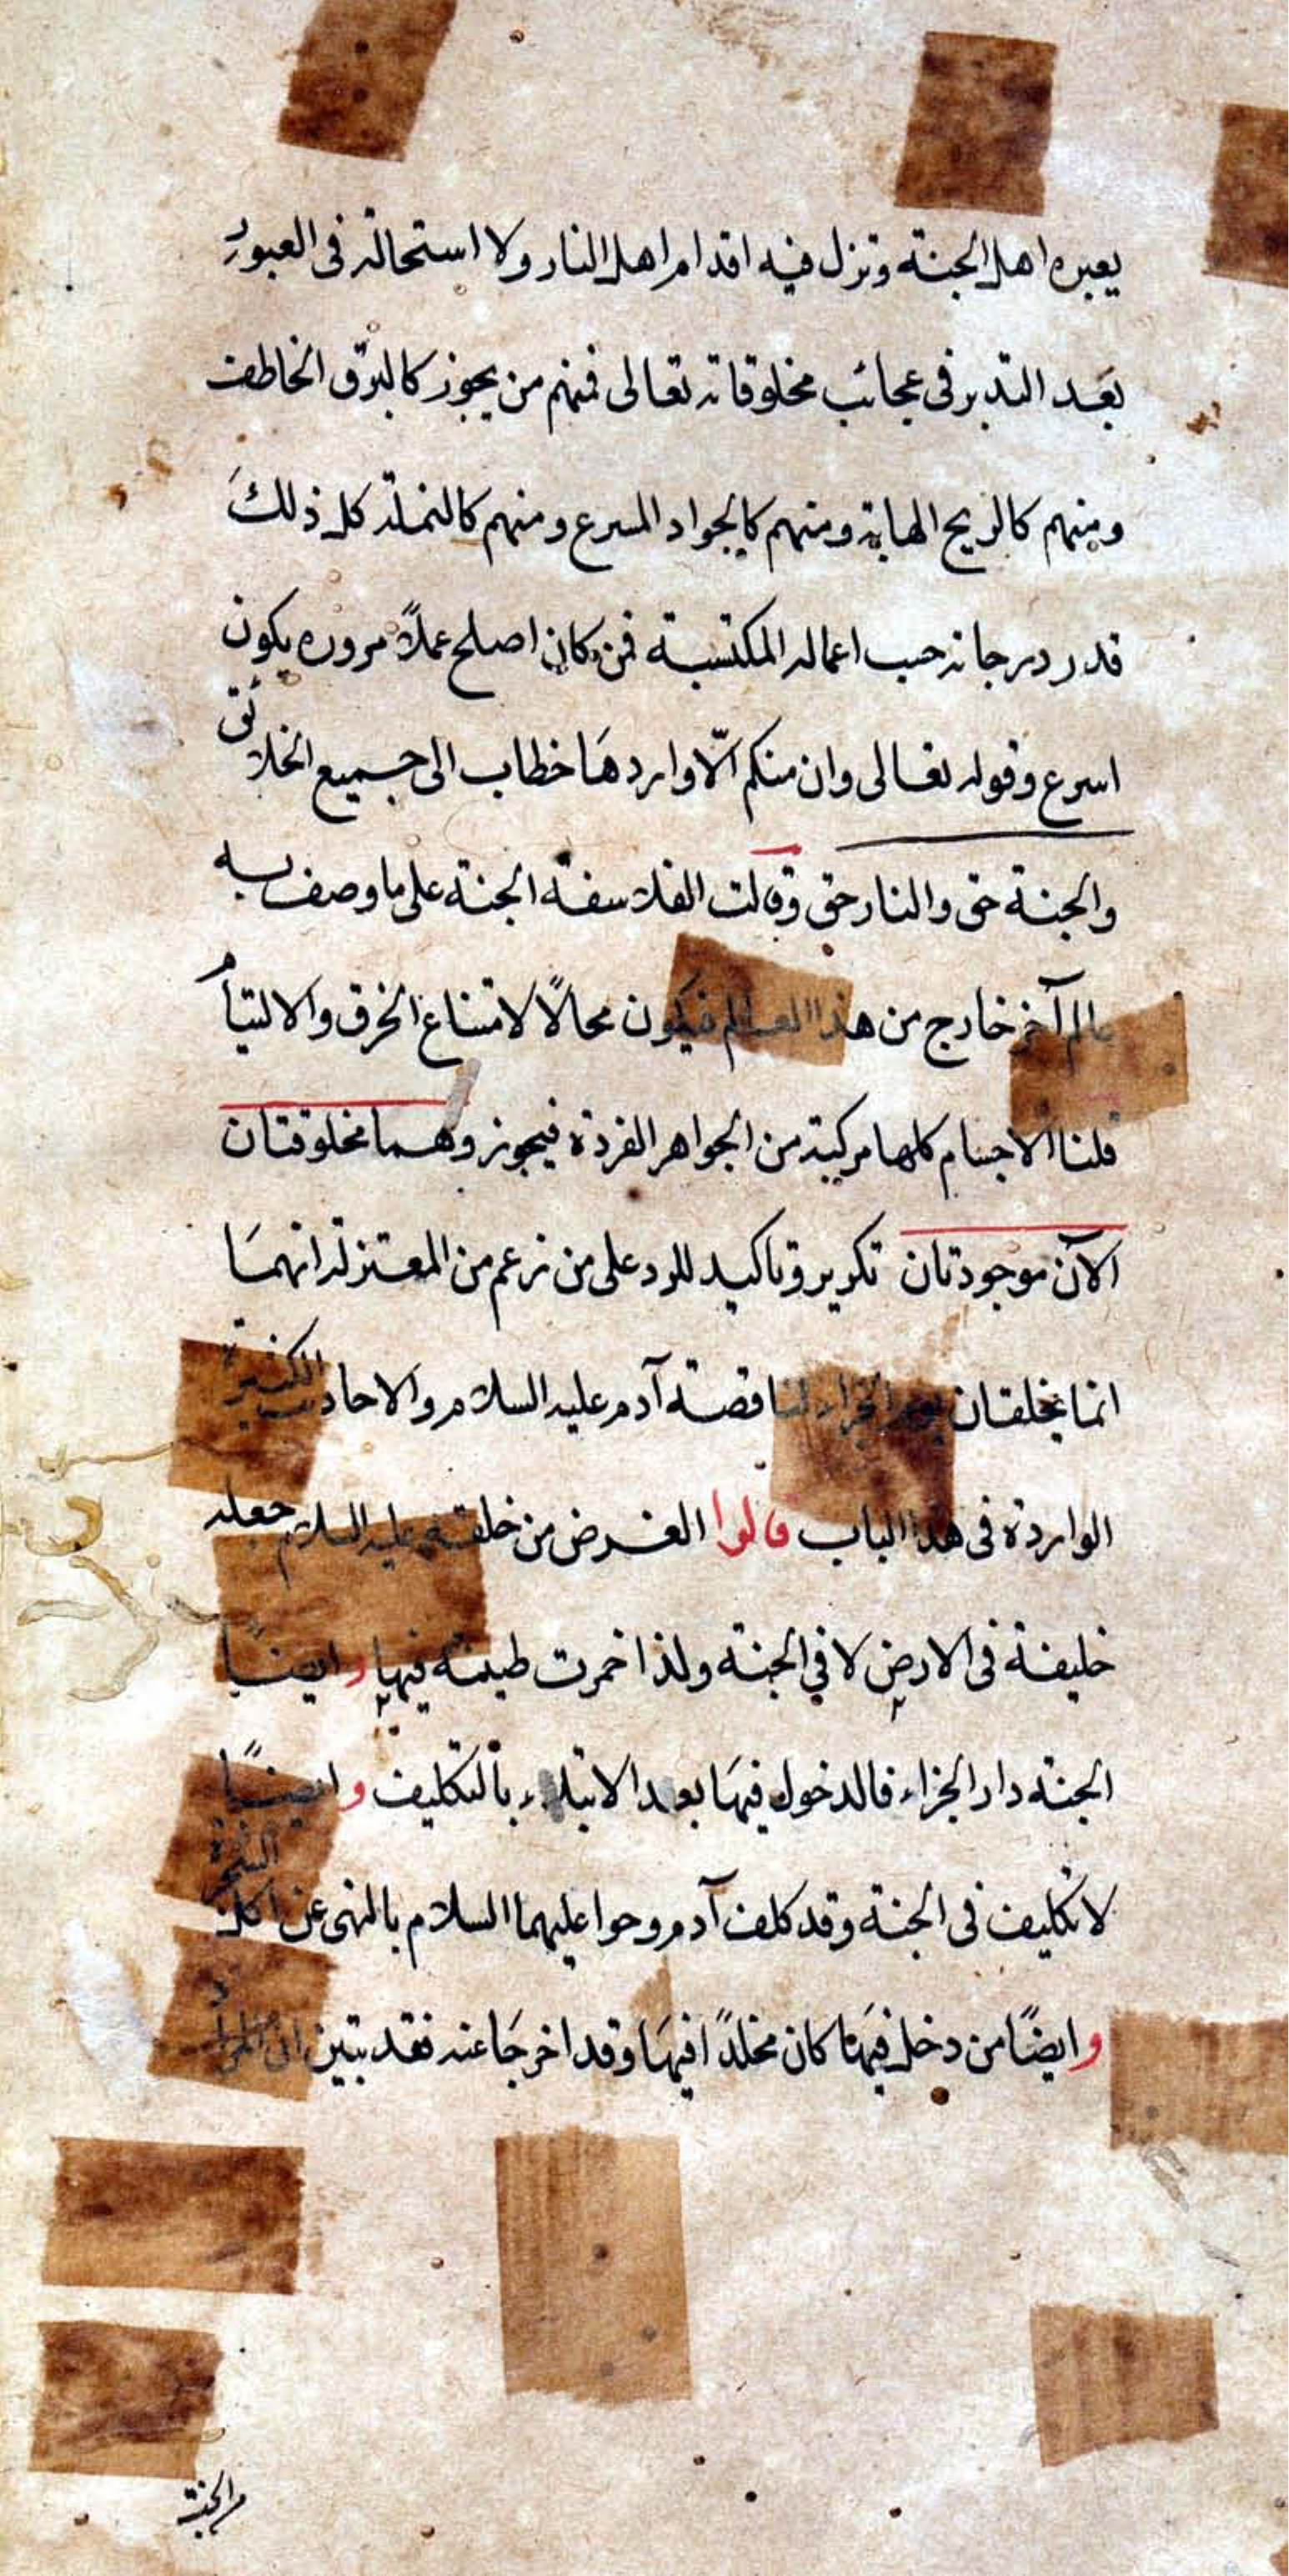 يعبره اهل الجنة وتزل فيه اقدام اهل النار ولا استحالة فى العبور
بعد التدبر فى عجائب مخلوقاته تعالى فمنهم من يجوز كالبرق الخاطف
ومنهم كالريح الهابة ومنهم كالجواد المسرع ومنهم كالنملة كل ذلك
قدر درجاته حسب اعماله المكتسبة فمن كان اصلح عملاً مروره يكون
اسرع وقوله تعالى وان منكم الّا واردها خطاب الى جميع الخلائق
والجنة حق والنار حق وقالت الفلاسفة الجنة على ما وصف به
عالم آخر خارج من هذا العالم فيكون محالًا لامتناع الخرق والالتيام
قلنا الاجسام كلها مركبة من الجواهر الفردة فيجوز وهما مخلوقتان
الآن موجودتان تكرير وتاكيد للرد على من زعم من المعتزلة انهما
انما يخلقان يوم الجزاء لنا قصة آدم عليه السلام والاحاديث الكثيرة
الواردة فى هذا الباب قالوا الغرض من خلقه عليه السلام جعله
خليفة فى الارض لا في الجنة ولذا خمرت طينته فيها وايضًا
الجنة دار الجزاء فالدخول فيها بعد الابتلاء بالتكليف وايضًا
لا تكليف فى الجنة وقد كلف آدم وحوا عليهما السلام بالنهى عن اكل الشجرة
وايضًا من دخل فيها كان مخلدًا فيها وقد اخرجا عنه فقد تبين ان المراد
من الجنة